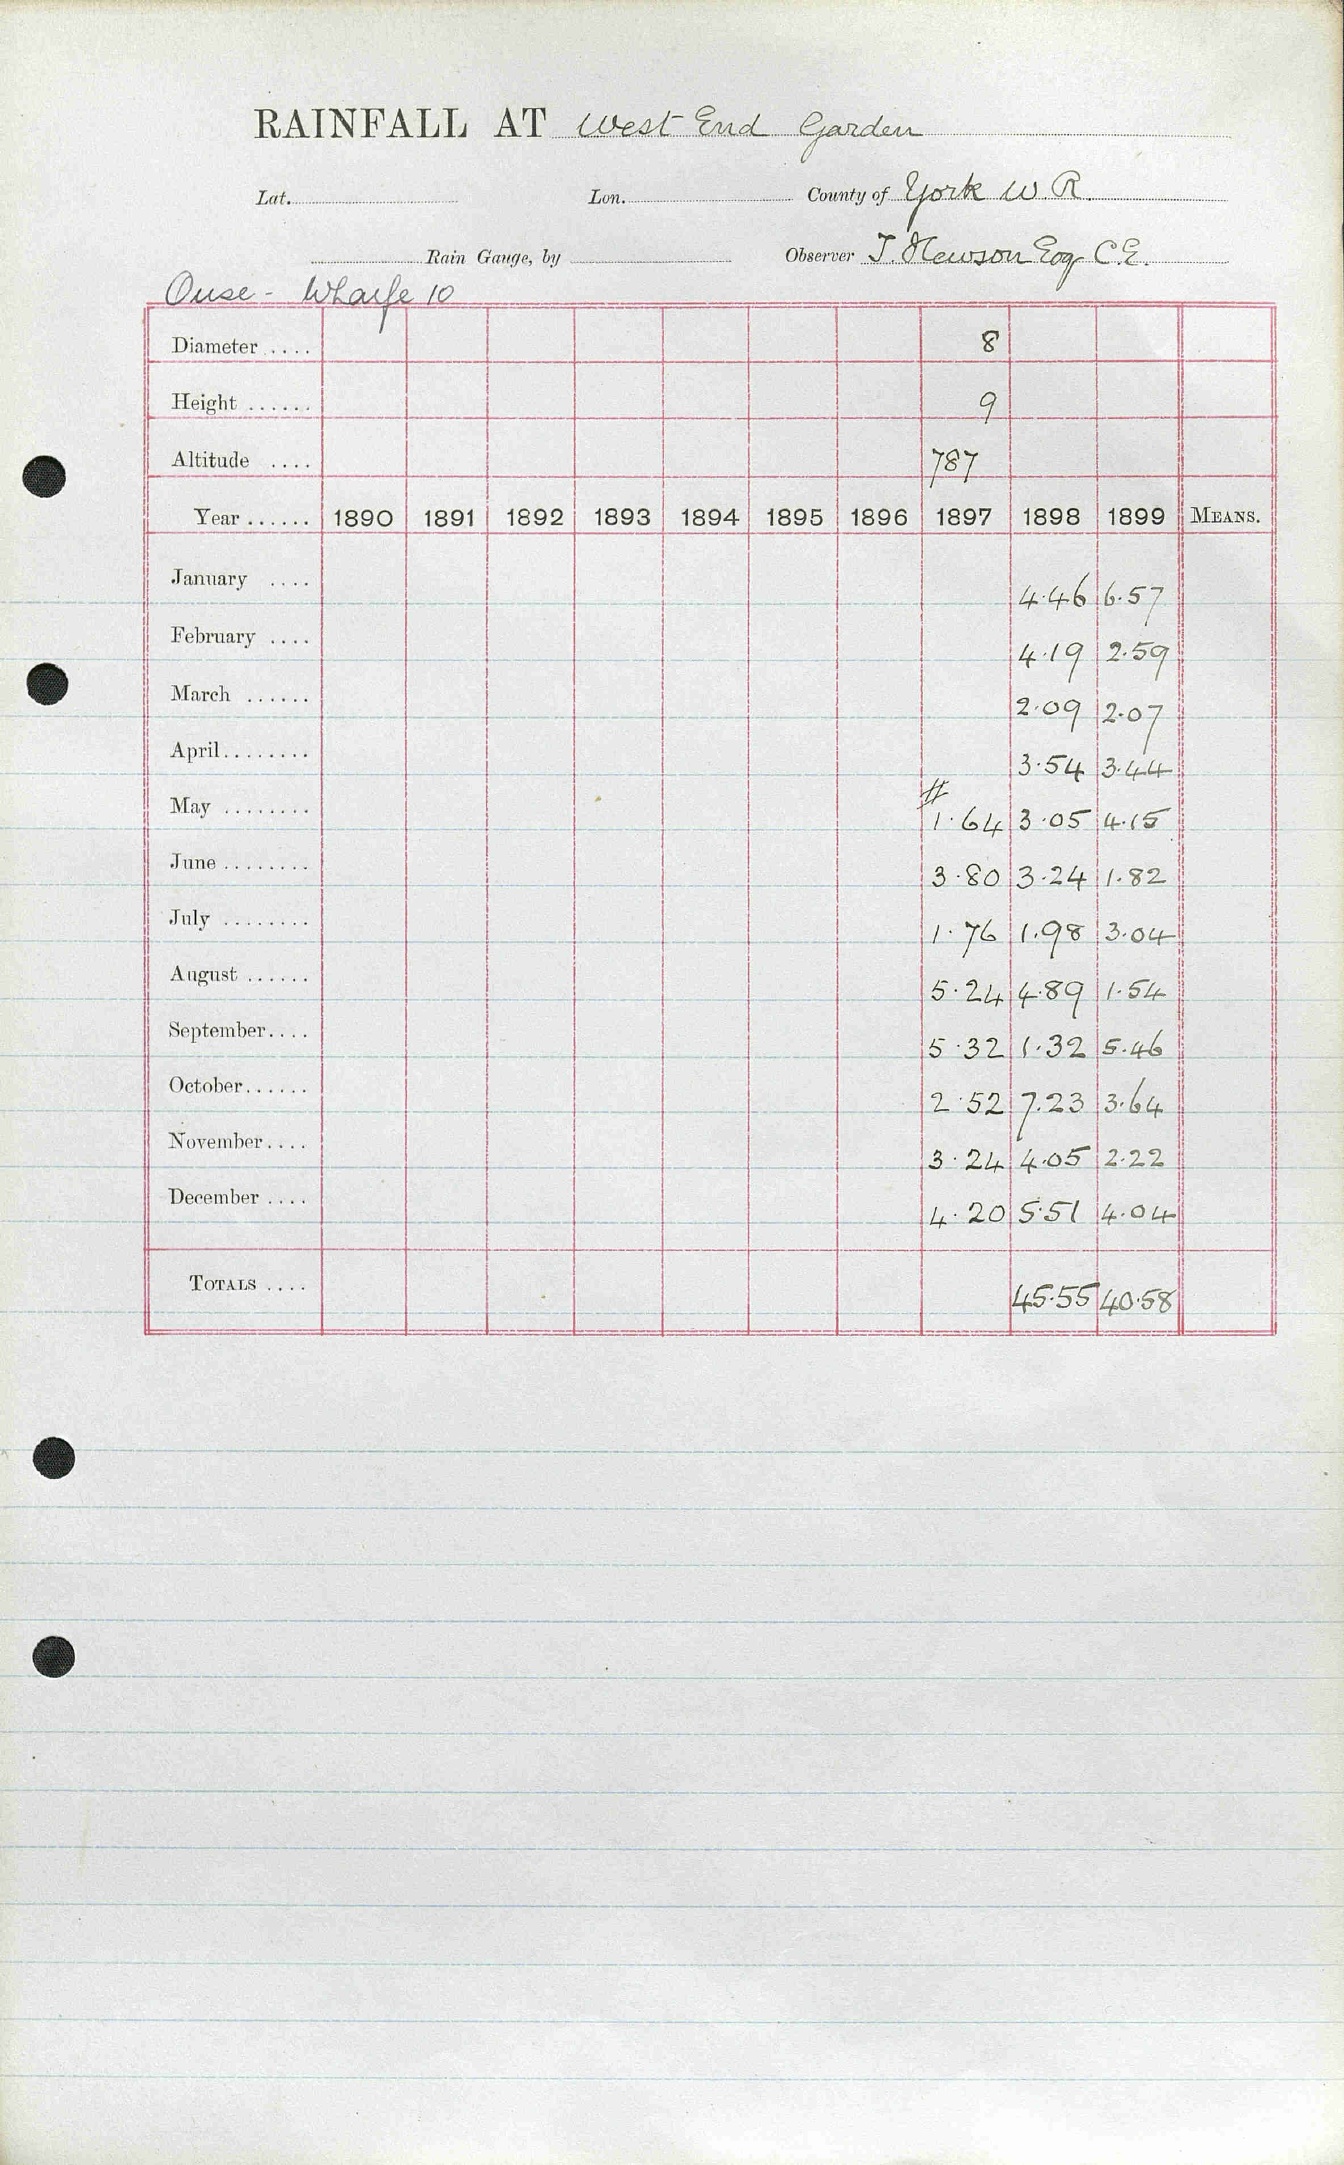 RAINFALL AT West End Garden
Lat. Lon. County of York W.R.
Rain Gauge, by Observer T. Hewson Esq C.E.
Ouse - Wharfe 10
Diameter .... 8
Height ...... 9
Altitude .... 787
Year ...... 1890 1891 1892 1893 1894 1895 1896 1897 1898 1899 MEANS.
January .... 4.46 6.57
February .... 4.19 2.59
March ...... 2.09 2.07
April........ 3.54 3.44
#
May ........ 1.64 3.05 4.15
June ........ 3.80 3.24 1.82
July ........ 1.76 1.98 3.04
August ...... 5.24 4.89 1.54
September.... 5.32 1.32 5.46
October...... 2.52 7.23 3.64
November.... 3.24 4.05 2.22
December .... 4.20 5.51 4.04
TOTALS .... 45.55 40.58